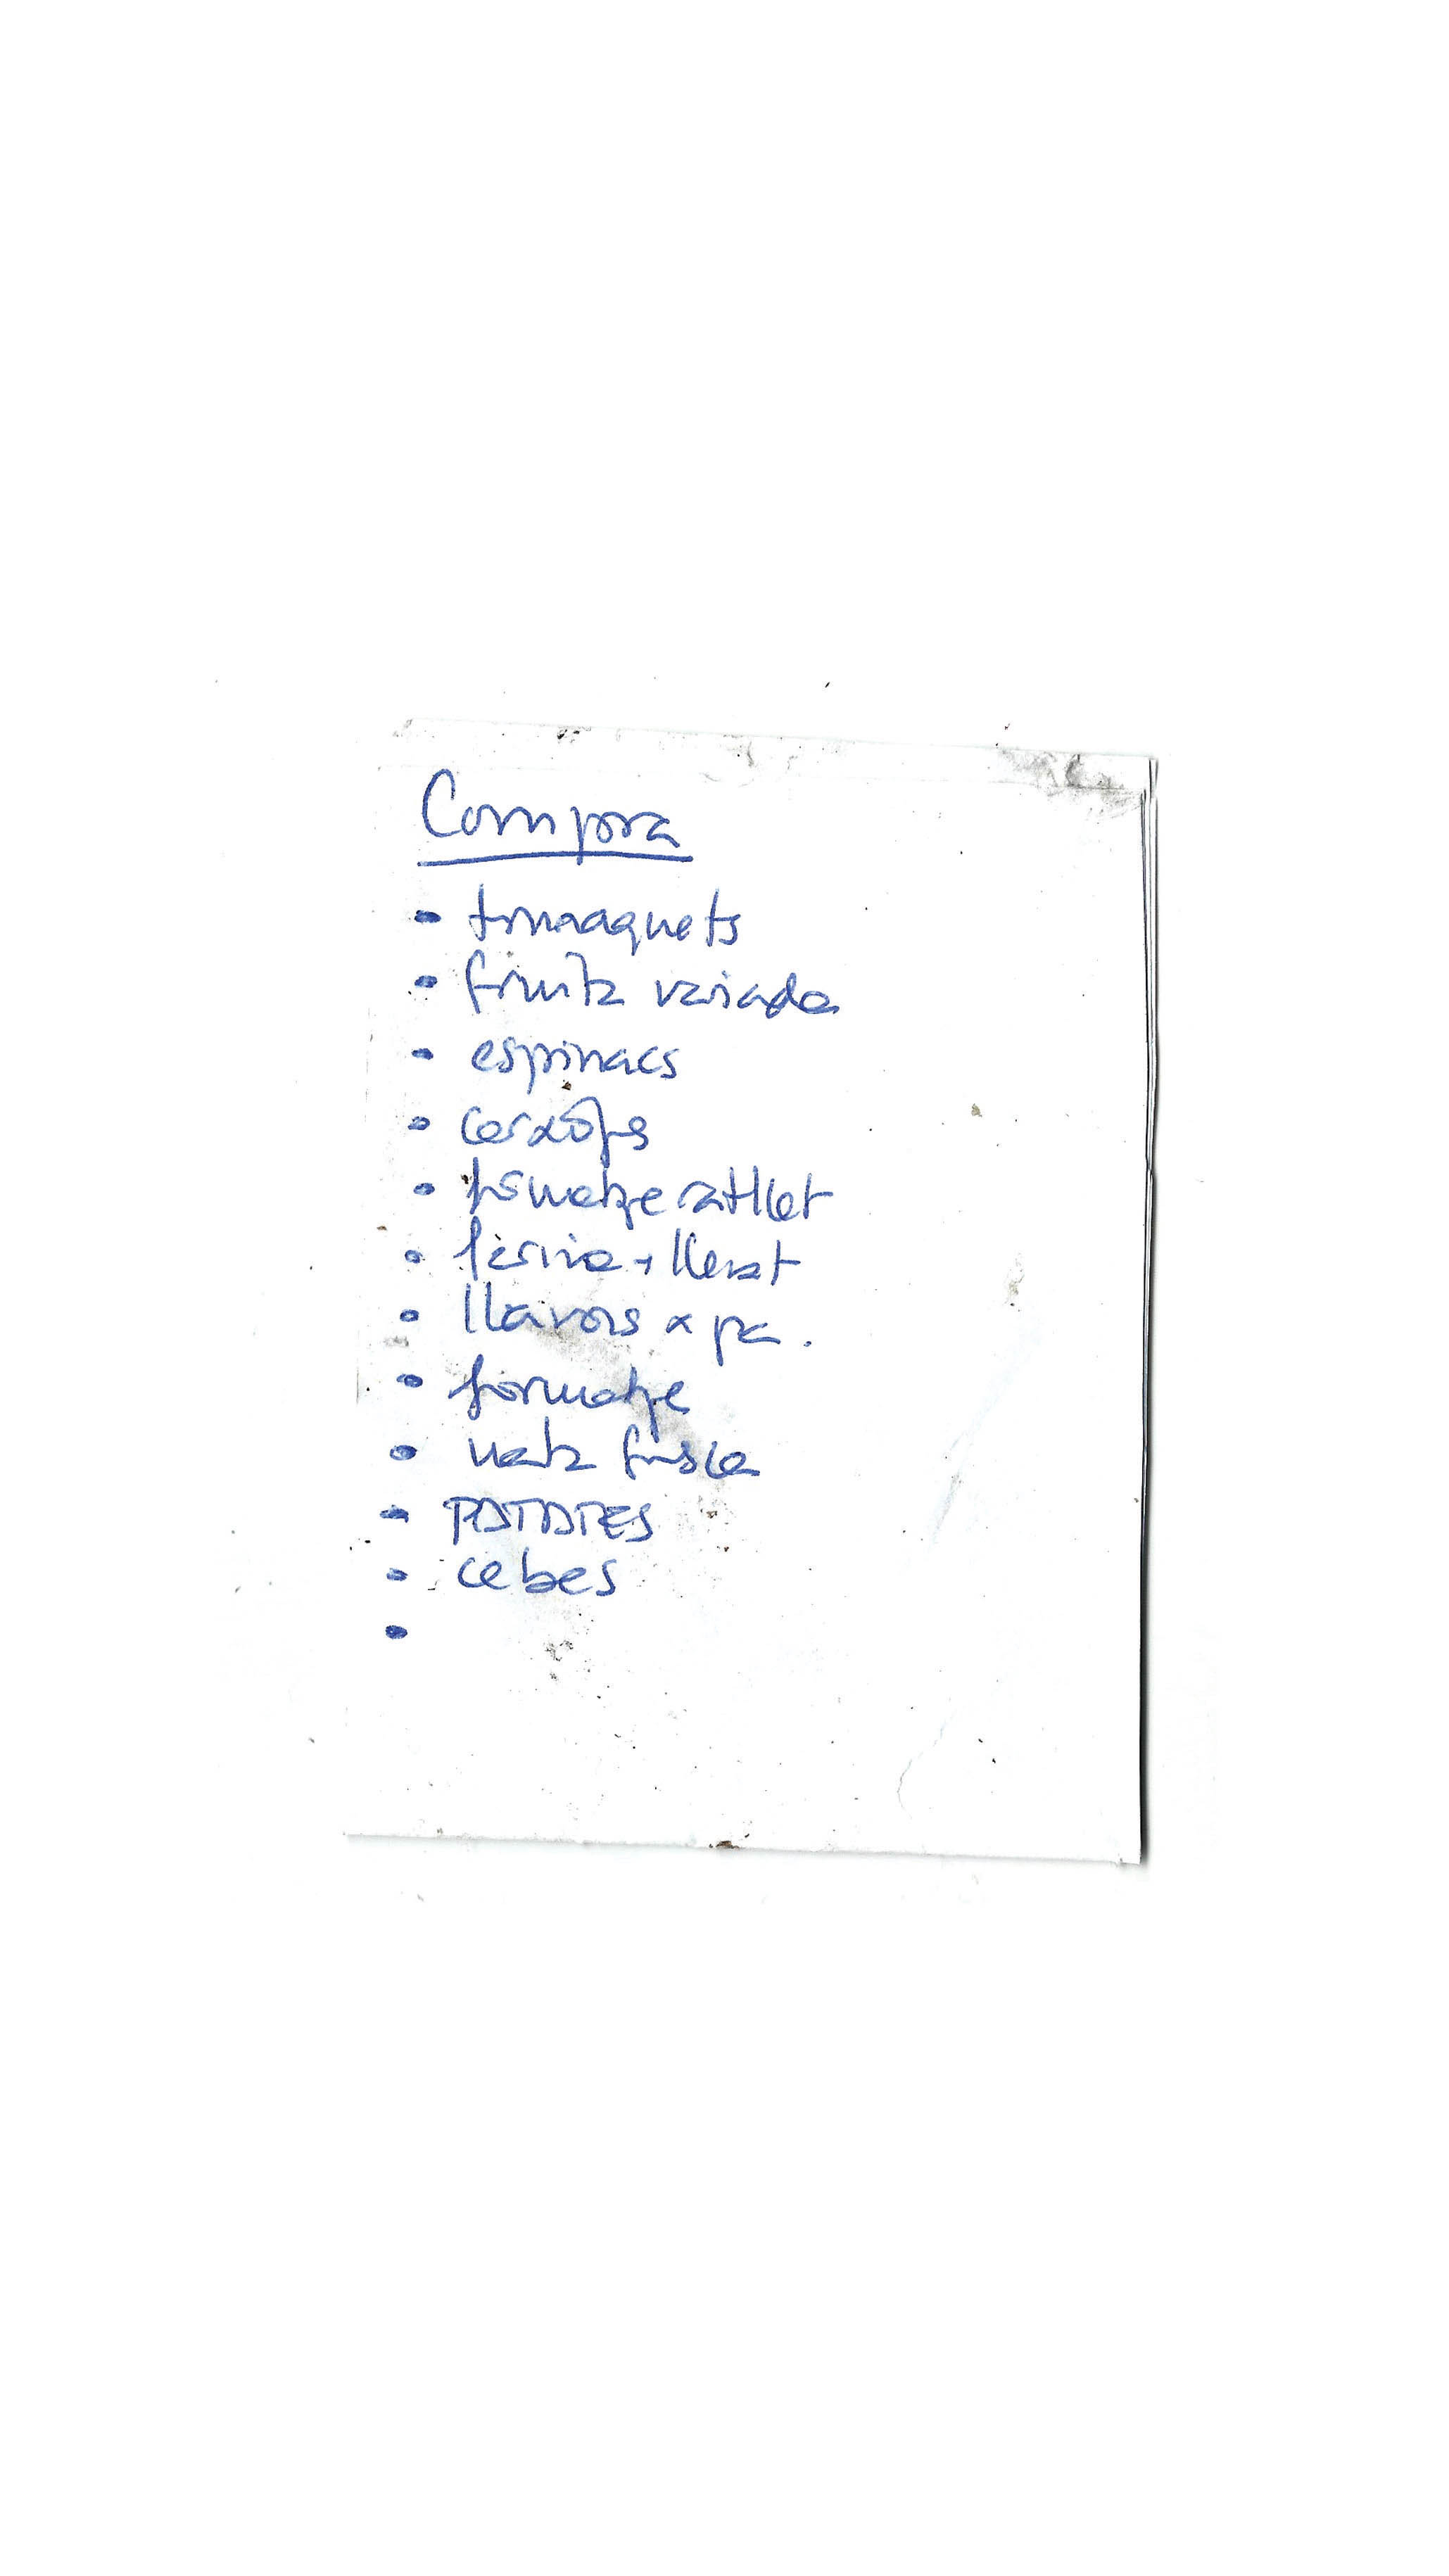 Compra
• tomaquets
• fruita variada
• espinacs
• carxofes
• formatge ratllat
• farina + llevat
• llavors x pa.
• formatge
• nata fresca
• PATATES
• cebes
•